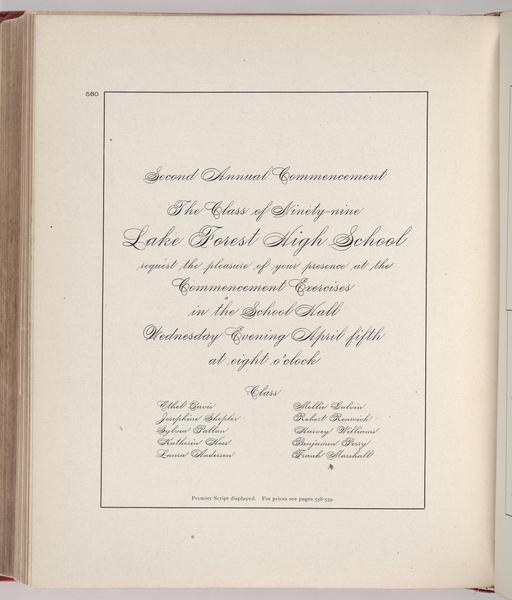 560
Second Annual Commencement
The Class of Ninety-nine
Lake Forest High School
request the pleasure of your presence at the
Commencement Exercises
in the School Hall
Wednesday Evening April fifth
at eight o'clock
Class
Ethel Davis
Josephine Shepler
Sylvia Pallan
Katherin Hess
Laura Anderson
Mollie Galvin
Robert Renwick
Harvey Williams
Benjamin Perry
Frank Marshall
Premier Script displayed. For prices see pages 558-559.